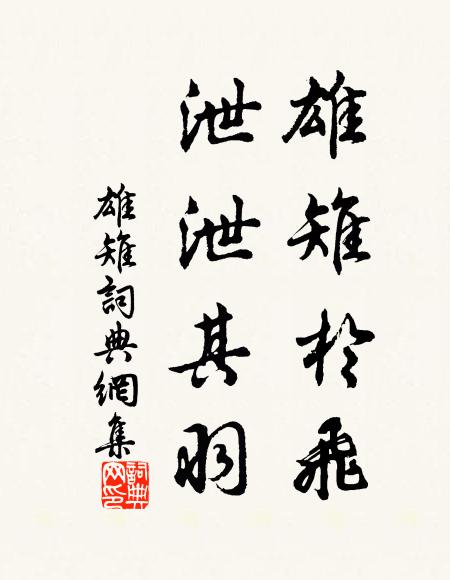 雄雉於飛
泄泄其羽
雄雉詞典網集
詞典網印